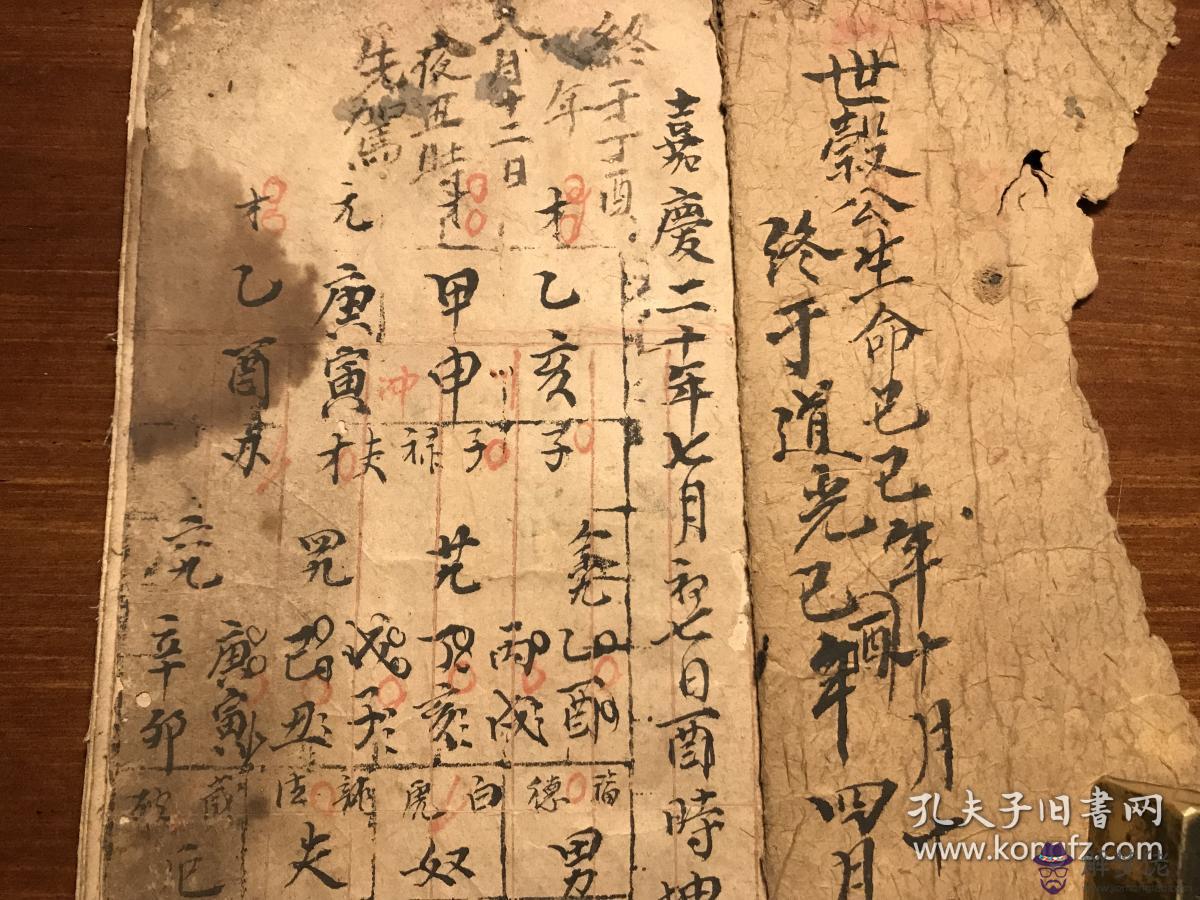 世穀公生命己巳年十月十
酉
終于道光己巳年四月
嘉慶二十年七月初七日酉時坤
終于丁酉
年
八月十二日
夜丑時
先駕
才
才
元
才
乙亥
甲申
庚寅
乙酉
子
子
禄
夫
才
乙酉
丙戌
丁亥
戊子
己丑
庚寅
辛卯
六九
福德
白虎
龍德
男
奴
夫
冲
孔夫子旧书网
www.kongfz.com